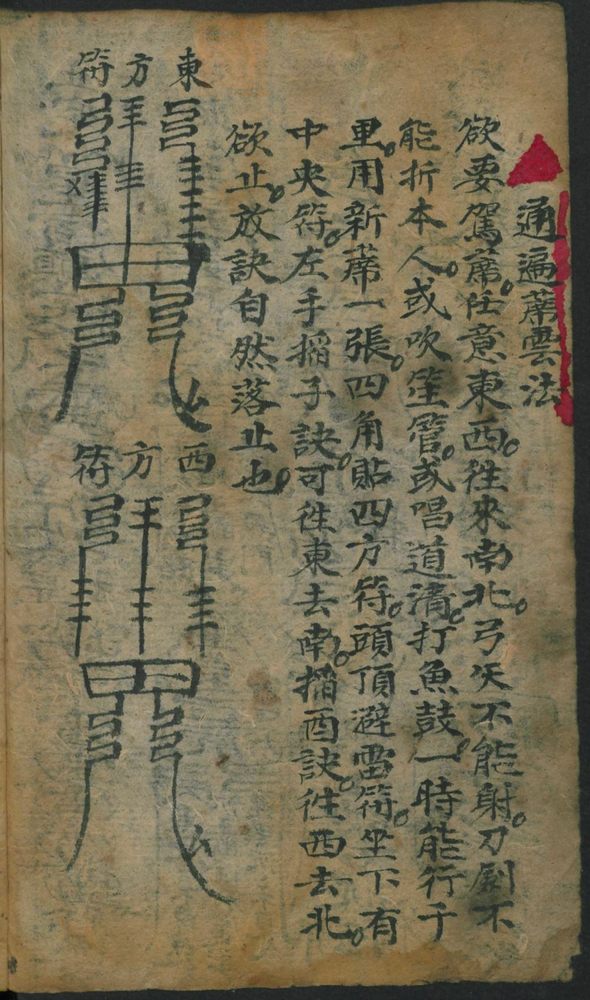 通遍蓆雲法
欲要駕蓆任意東西。往來南北。弓矢不能射。刀劍不
能折本人。或吹笙管。或唱道清。打魚鼓。一時能行千
里。用新蓆一張。四角貼四方符。頭頂避雷符。坐下有
中央符。左手搯子訣。可往東去南。搯酉訣。往西去北。
欲止。放訣自然落止也。
東方符
西方符